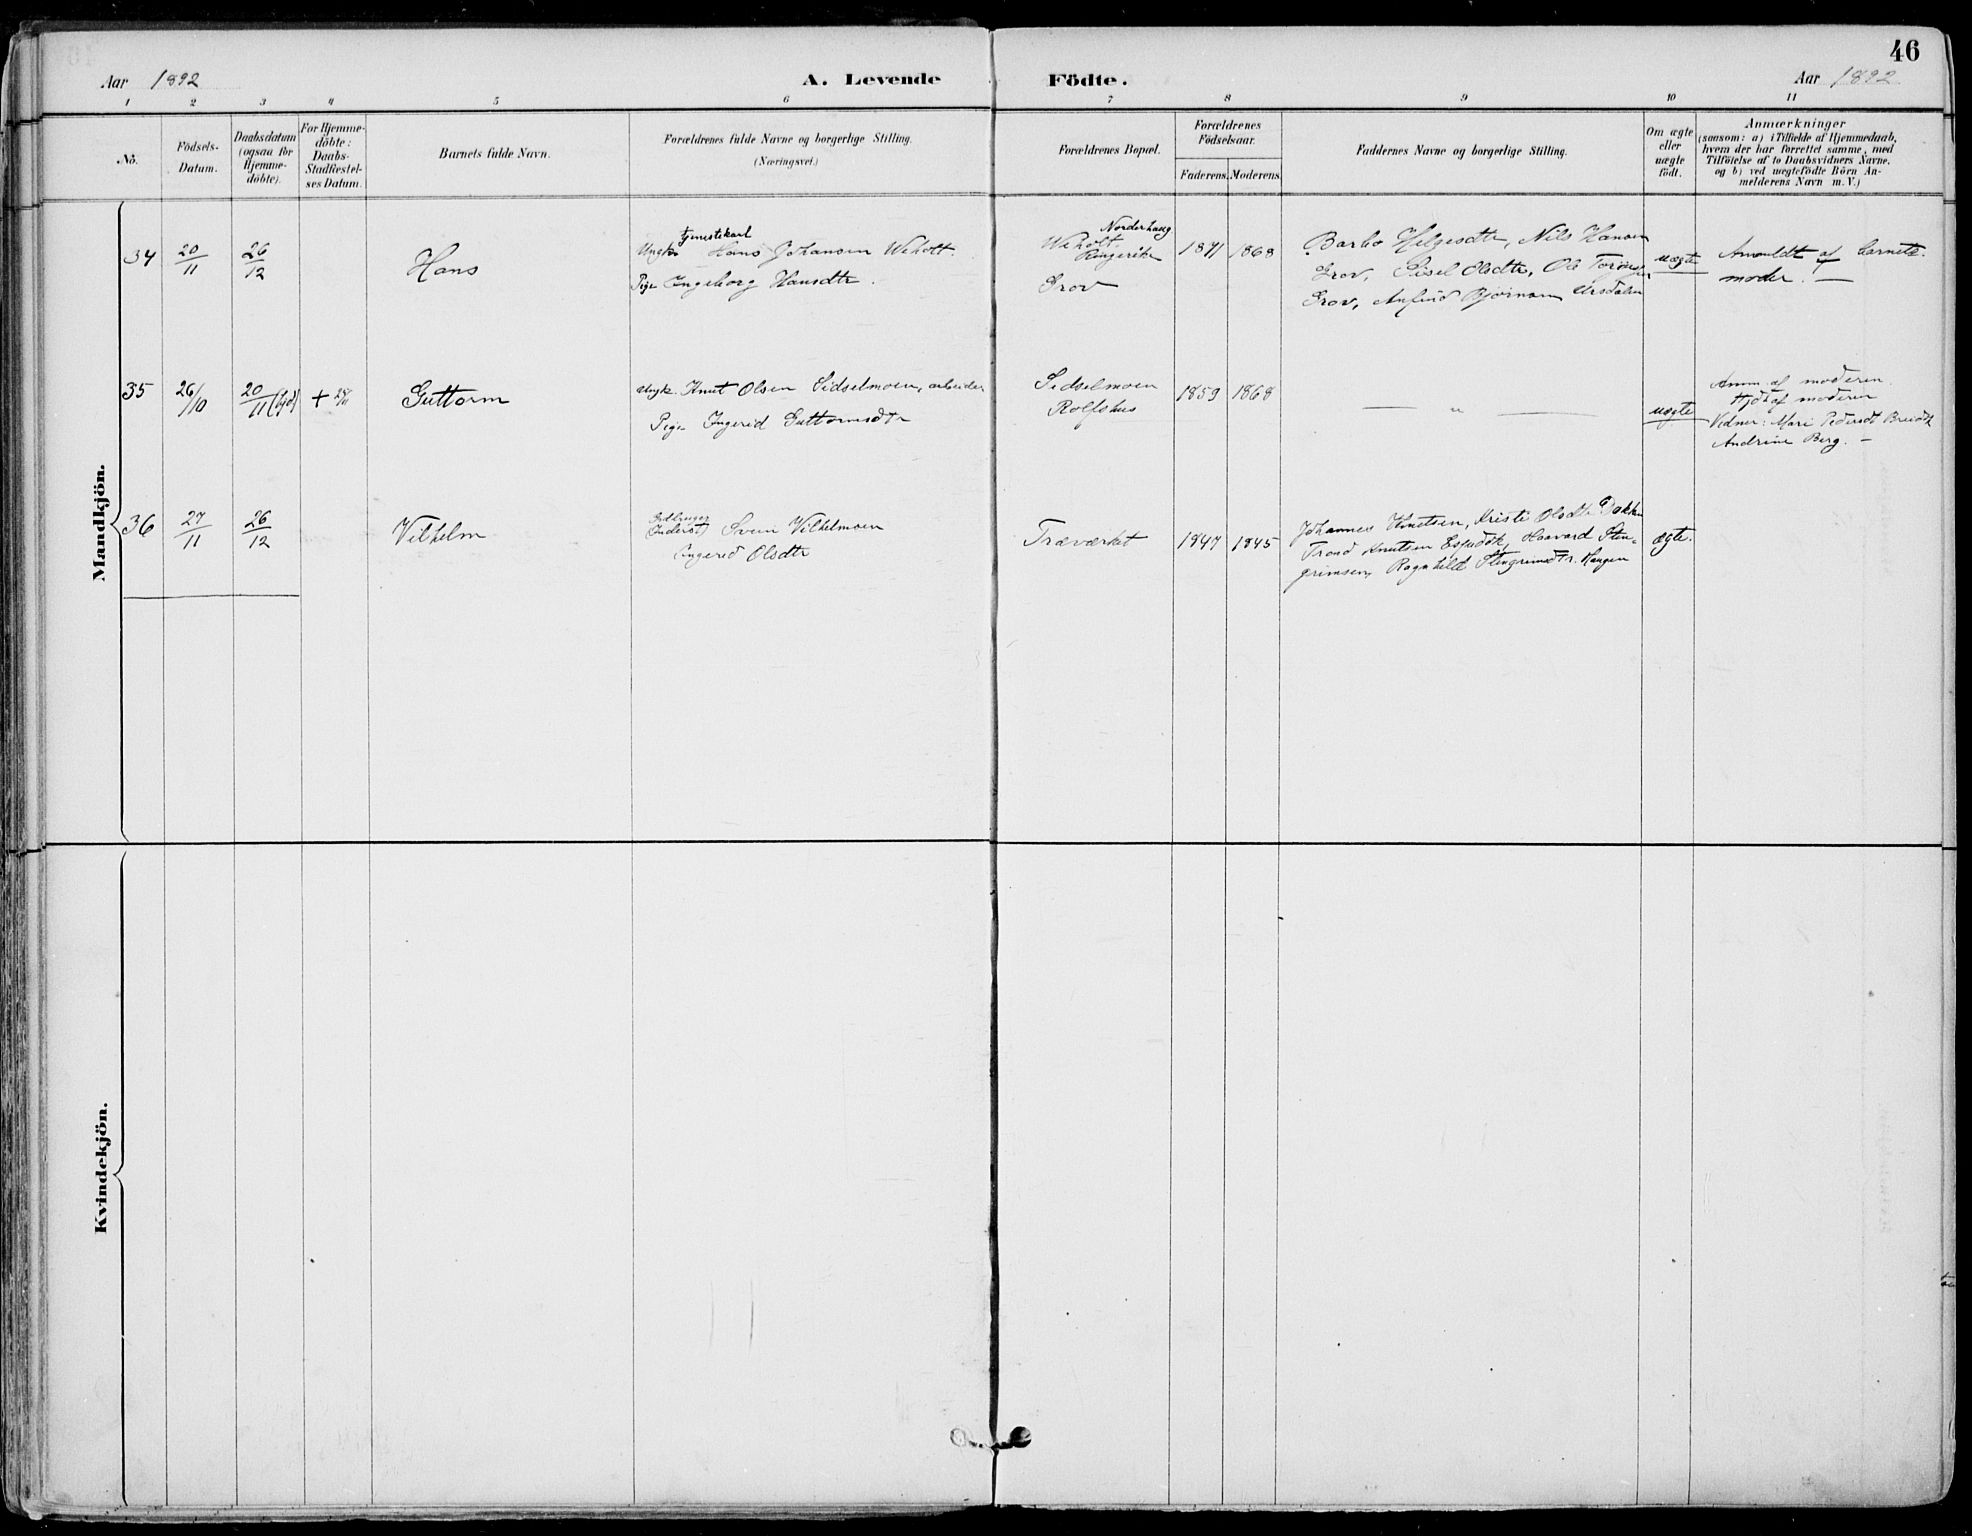 46
Aar 1892
A. Levende Födte.
Aar 1892
1 2 3 4 5 6 7 8 9 10 11
No.
Födsels-
Datum.
Daabsdatum
(ogsaa for
Hjemme-
döbte).
For Hjemme-
döbte:
Daabs-
Stadfæstel-
ses Datum.
Barnets fulde Navn.
Forældrenes fulde Navne og borgerlige Stilling.
(Næringsvei.)
Forældrenes Bopæl.
Forældrenes
Födselsaar.
Faderens. Moderens.
Faddernes Navne og borgerlige Stilling.
Om ægte
eller
uægte
födt.
Anmærkninger
(saasom: a) i Tilfælde af Hjemmedaab,
hvem der har forrettet samme, med
Tilföielse af to Daabsvidners Navne.
og b) ved uægtefödte Börn An-
melderens Navn m. V.)
Mandkjön.
34 20/11 26/12 Hans
tjenestekarl
Ungk. Hans Johansen Weholt.
Pige Ingeborg Hansdtr.
Norderhaug
Weholt.
Ringerike
Grov
1871 1868
Barbo Helgesdtr, Nils Hansen
Grov, Sisel Olsdtr, Ole
Grov, Anfind Bjørnsen
uægte
Anmeldt af barnets
moder. —
35 26/10 20/11 (hjd) + Guttorm
Ungk. Knut Olsen Sidselmoen, arbeider
Pige Ingerid Guttormsdtr
Sidselmoen
Rolfshus
1859 1868
— " —
uægte
Anm. af moderen.
Hjdt af moderen
Vidner: Mari Pedersdt
Andrine Berg. —
36 27/11 26/12 Vilhelm
Inderst Svein Vilhelmsen
Ingerid Olsdtr
Træværket
1847 1845
Johannes Knutsen, Kristi Olsdtr Dokken
Trond Knutsen Haavard Sten-
grimsen, Ragnhild Stengrimsdtr. Haugen
ægte.
Kvindekjön.